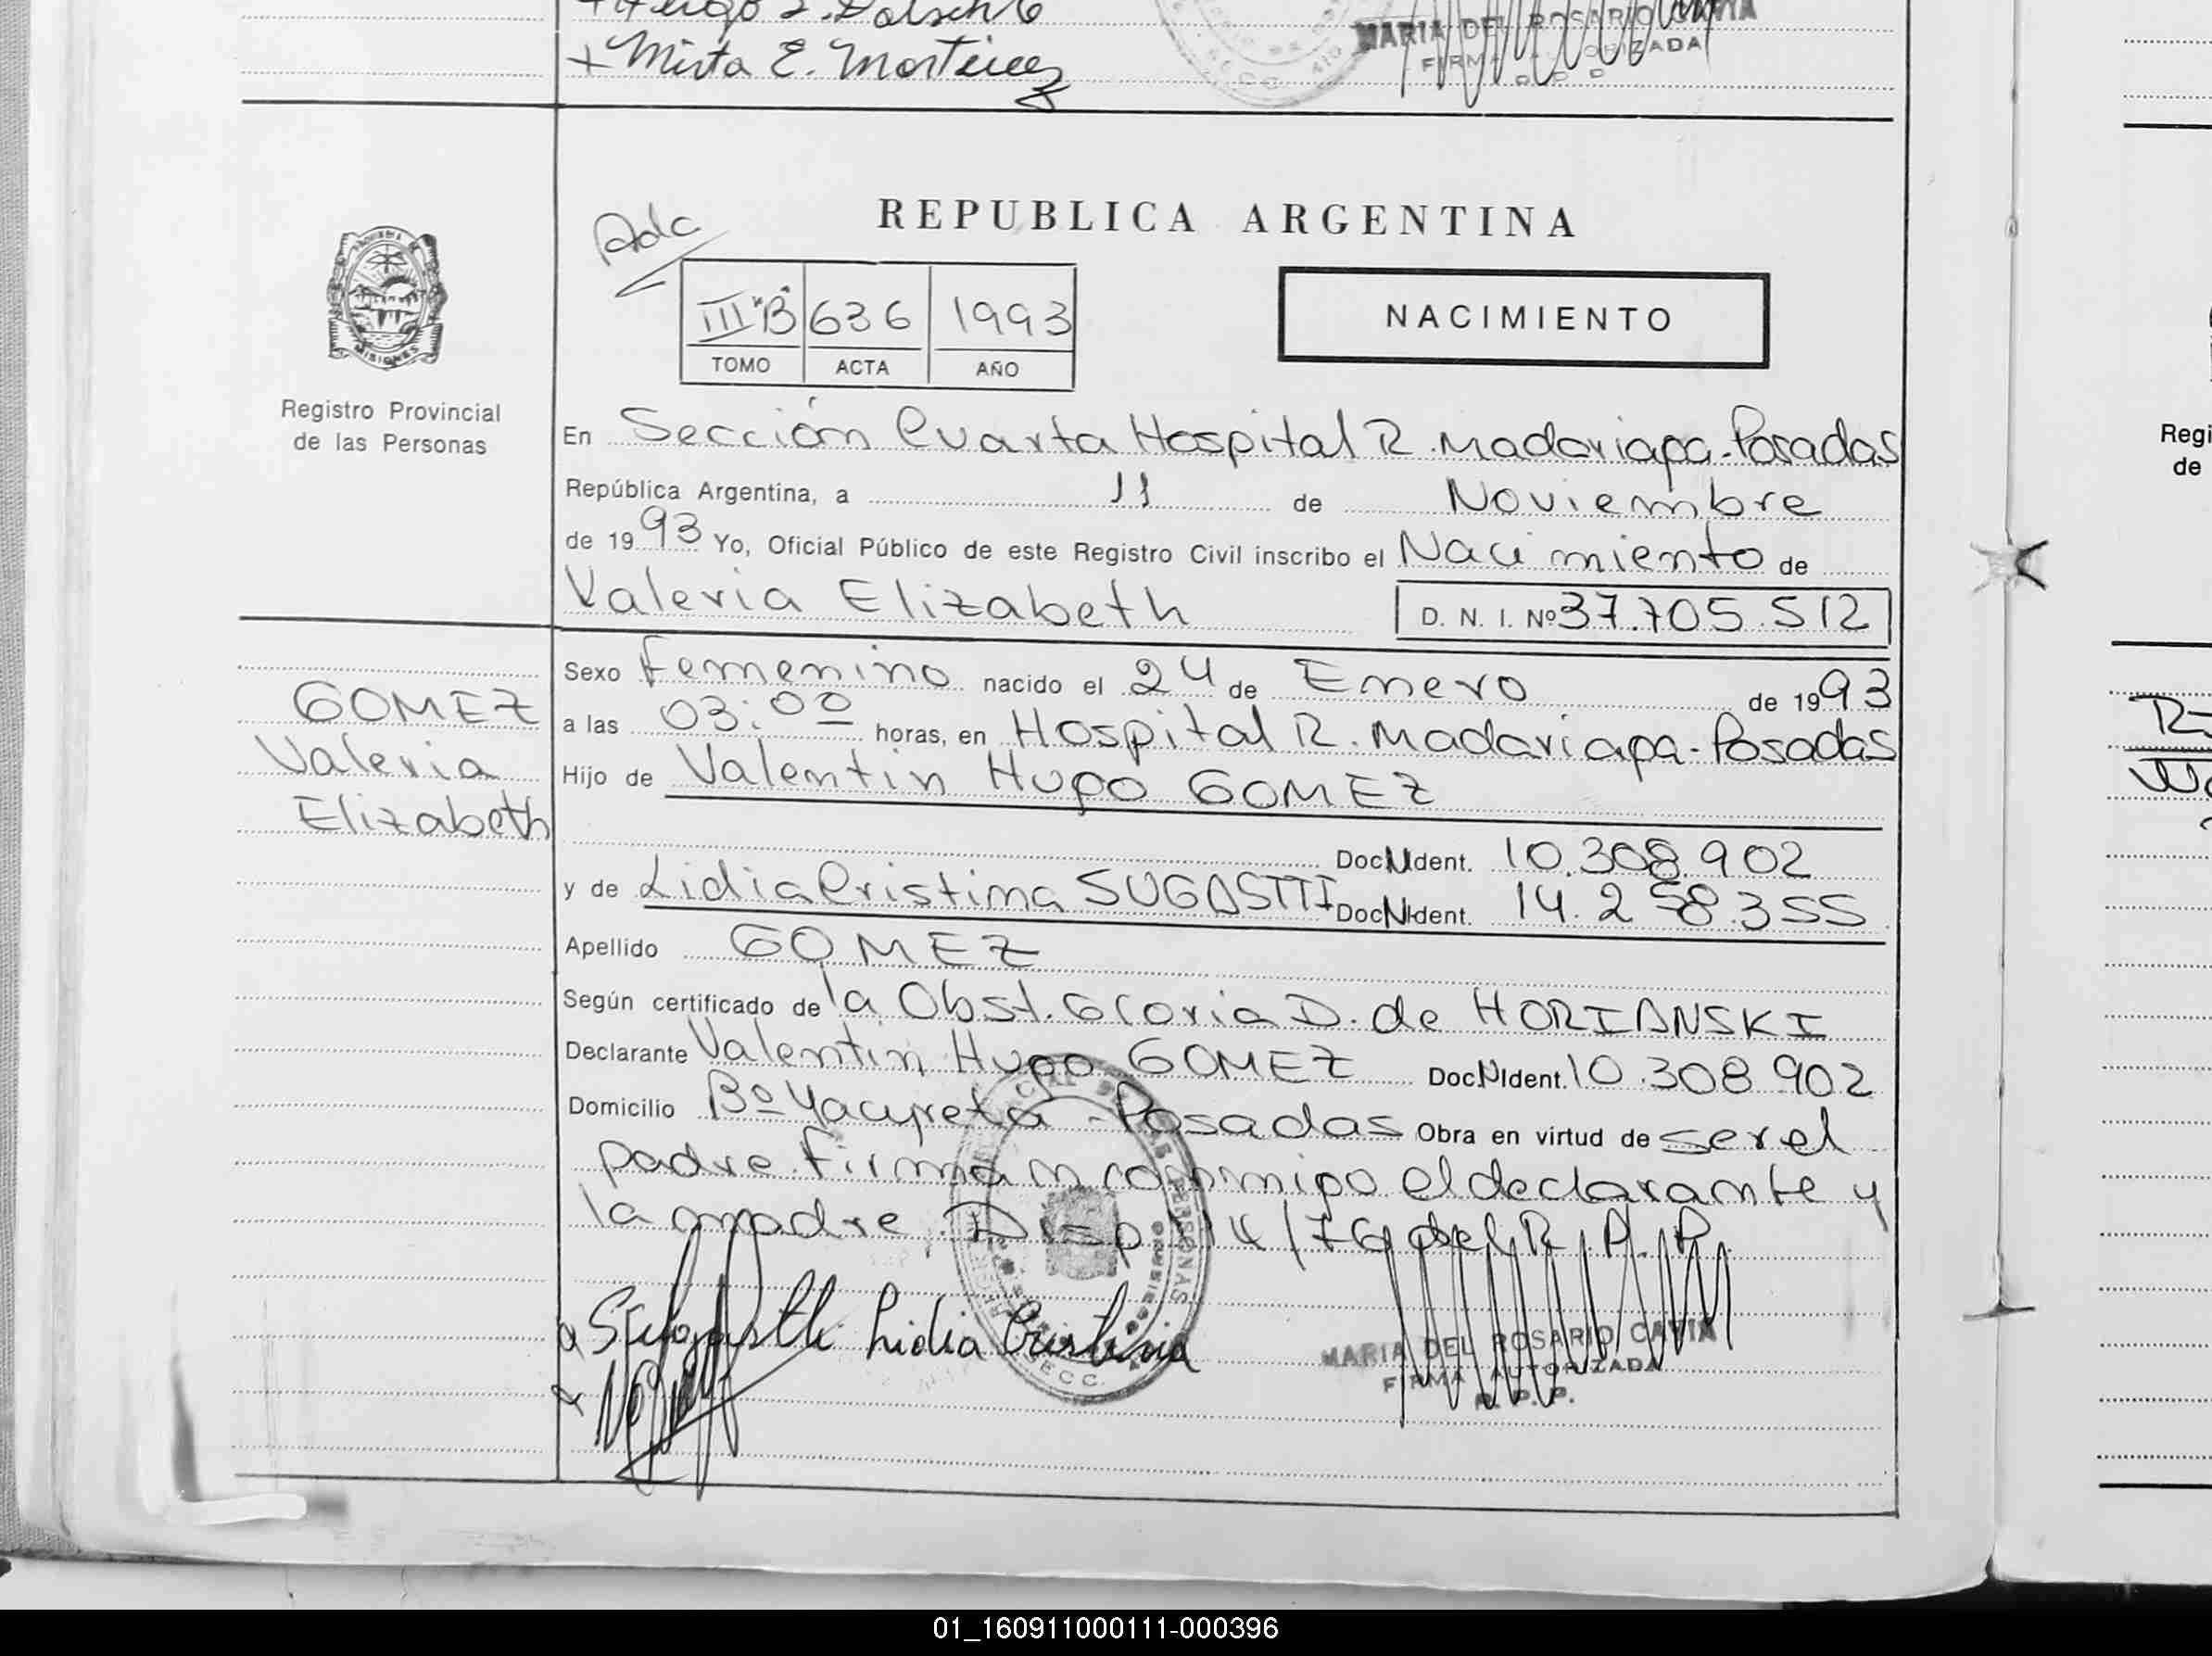 + Mirta E. Martinez
MARIA DEL ROSARIO CAVIA
FIRMA AUTORIZADA
R. P. P.
REPUBLICA ARGENTINA
Adc
III "B" 636 1993
TOMO ACTA AÑO
NACIMIENTO
PROVINCIA DE
MISIONES
Registro Provincial
de las Personas
En Sección Cuarta Hospital R. Madariaga - Posadas
República Argentina, a 11 de Noviembre
de 1993 Yo, Oficial Público de este Registro Civil inscribo el Nacimiento de
Valeria Elizabeth D. N. I. Nº 37.705.512
GOMEZ
Valeria
Elizabeth
Sexo Femenino nacido el 24 de Enero de 1993
a las 03:00 horas, en Hospital R. Madariaga - Posadas
Hijo de Valentin Hugo GOMEZ
Doc.N.Ident. 10.308.902
y de Lidia Cristina SUGASTTI Doc.N.Ident. 14.258.355
Apellido GOMEZ
Según certificado de la Obst. Gloria D. de HORIANSKI
Declarante Valentin Hugo GOMEZ Doc.N.Ident. 10.308.902
Domicilio Bº Yacyreta - Posadas Obra en virtud de ser el
padre. Firman conmigo el declarante y
la madre, Disp. 14/76 del R. P. P.
Lidia Cristina
MARIA DEL ROSARIO CAVIA
FIRMA AUTORIZADA
R. P. P.
Regi
de
01_160911000111-000396